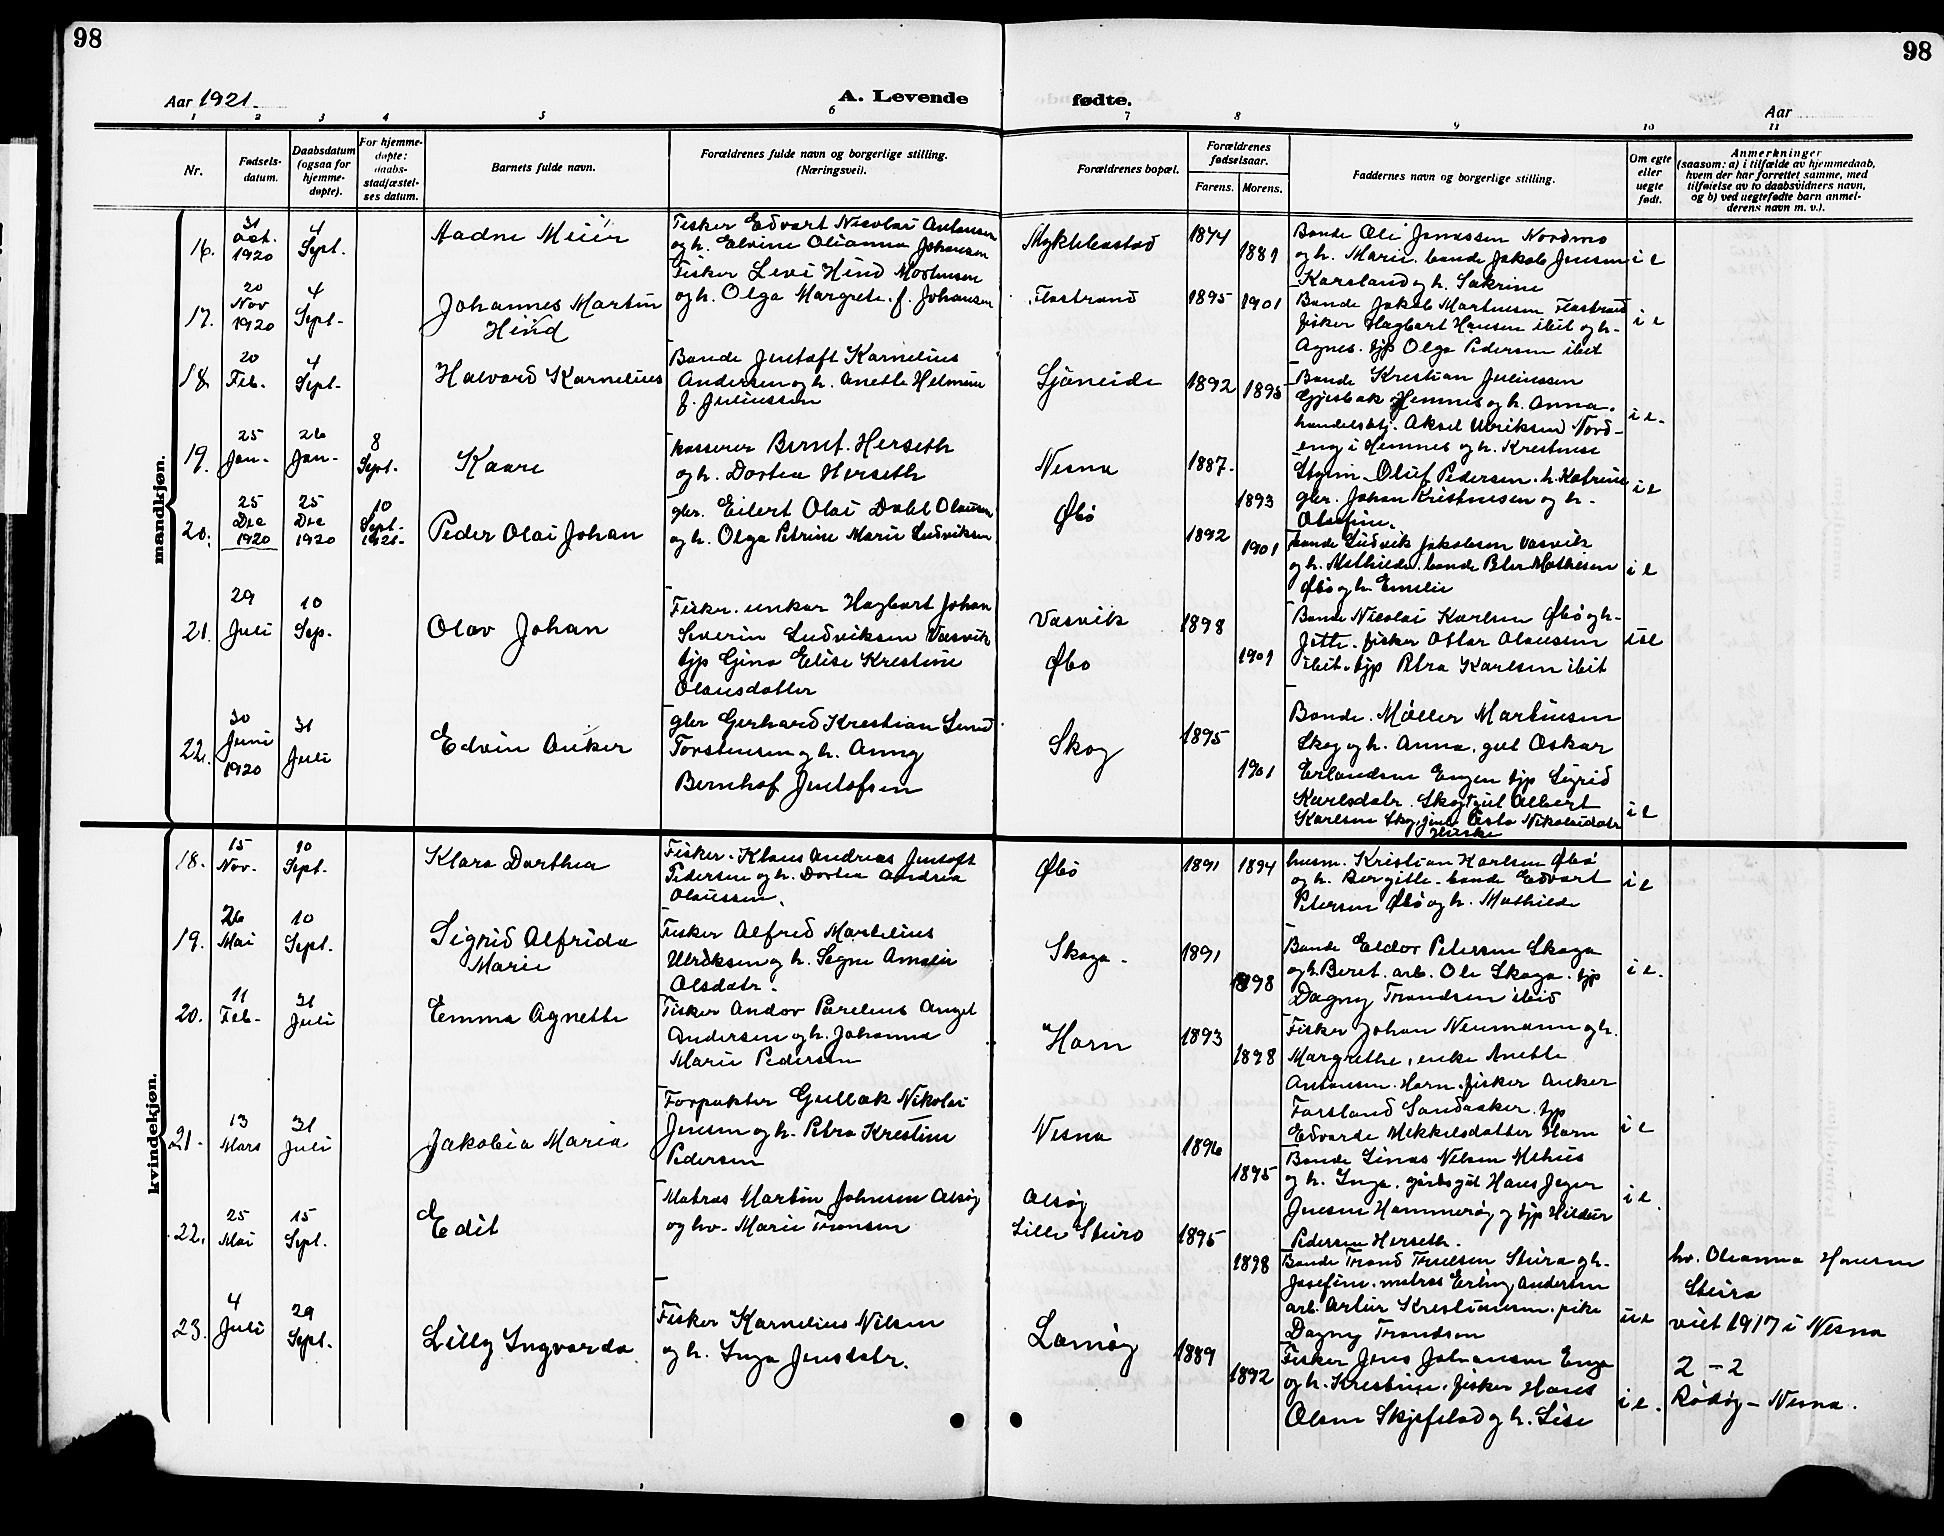 98
98
Aar 1921.
A. Levende
fødte.
Aar
1 2 3 4 5 6 7 8 9 10 11
Nr.
Fødsels-
datum.
Daabsdatum
(ogsaa for
hjemme-
døpte).
For hjemme-
døpte:
daabs-
stadfæstel-
ses datum.
Barnets fulde navn.
Forældrenes fulde navn og borgerlige stilling.
(Næringsvei).
Forældrenes bopæl.
Forældrenes
fødselsaar.
Farens. Morens.
Faddernes navn og borgerlige stilling.
Om egte
eller
uegte
født.
Anmerkninger
(saasom: a) i tilfælde av hjemmedaab,
hvem der har forrettet samme, med
tilføielse av to daabsvidners navn,
og b) ved uegtefødte barn anmel-
derens navn m. v.).
mandkjøn.
16.
31
Oct.
1920
4
Sept.
Aadne Meier
Fisker Edvart Nicolai Antonsen
og h. Elvine Olianna Johansen
1874
Bonde Oli Jonassen Nordmo
og h. Marie. bonde Jakob Jensen
Karsland og h. Sakrine
i e
17.
20
Nov
1920
4
Sept.
Johannes Martin
Hind
Fisker Levi Hind Mortensen
og h. Olga Margrete f. Johansen
Flostrand
1895
1901
Bonde Jakob Martinsen Flostrand
fisker Hagbart Hansen ibit og h.
Agnes. tjp Olga Pedersen ibit
i e
18.
20
Feb.
4
Sept.
Halvard Kornelius
Bonde Justoft Kornelius
Andersen og h. Anette Helmine
f. Juliussen
Sjøneide
1892
1895
Bonde Krestian Juliussen
Gjesbak Hemnes og h. Anna.
handelsbtj. Aksel Ulriksen Nord-
eng i Hemnes og h. Krestine
i e.
19.
25
Jan.
26
Jan.
8
Sept.
Kaare
kasserer Bernt Herseth
og h. Dortea Herseth
Nesna
1887.
1893
Oluf Pedersen. h. Katrine
gbr. Johan Kristensen og h.
i e
20.
25
Dec
1920
25
Dec
1920
10
Sept.
1921.
Peder Olai Johan
gbr. Eilert Olai Dahl Olausen
og h. Olga Petrine Marie Ludviksen
Øbø
1892
1901
bonde Ludvik Jakobsen Vasvik
og h. Mathilde. bonde Peter Mathisen
Øbø og h. Emelie
i e
21.
29
Juli
10
Sep.
Olav Johan
Fisker. unkar Hagbart Johan
Severin Ludviksen Vasvik
tjp Gina Elise Krestine
Olausdatter
Vasvik
Øbø
1898
1901
Bonde Nicolai Karlsen Øbø og h.
Jette. fisker Ottar Olaussen
ibit. tjp Petra Karlsen ibit
u e
22.
30
Juni
1920
31
Juli
Edvin Anker
gbr Gerhard Krestian Lund
Torstensen og h. Anny
Bernhof Justofsen
Skog
1895
1901
Bonde. Møller Martinsen
Skog og h. Anna. gut Oskar
Erlandsen Engen tjp Sigrid
Karlsdatr. Skog gut Albert
Karlsen Skog, Asta Nikolaidatr
i e
kvindekjøn.
18.
15
Nov.
10
Sept.
Klara Dorthea
Fisker. Klaus Andreas Justoft
Pedersen og h. Dortea Andrea
Olaussen.
Øbø
1891
1894
husm. Kristian Karlsen Øbø
og h. Bergitte. bonde Edvart
Petersen Øbø og h. Mathilde
i e
19.
26
Mai
10
Sept.
Sigrid Alfrida
Marie
Fisker Alfred Martelius
Ulriksen og h. Signe Amalie
Olsdatr.
Skaga.
1891
1898
Bonde Eldor Petersen Skaga
og h. Beret. arb. Ole Skaga. tjp
Dagny Trondsen ibid
i e.
20.
11
Feb.
31
Juli
Emma Agnette
Fisker Andor Parelius Angel
Andersen og h. Johanna
Marie Pedersen
Horn
1893
1898
Fisker Johan Neumann og h.
Margrethe, enke Anette
Antonsen. Horn. fisker Anker
Forsland Sandaaker. tjp
Edvarda Mikkelsdatter Horn
i e
21.
13
Mars
31
Juli
Jakobia Maria
Forpakter Gullak Nikolai
Jensen og h. Petra Krestine
Pedersen
Nesna
1896
1895
Bonde Linas Nilsen
og h. Inga. gårdsgut Hans Jeger
Jensen Hammerøy og tjp Hildur
Pedersen Herseth.
i e.
22.
25
Mai
15
Sept.
Edit
Matros Martin Johnsen Alsøy
og hv. Marie Tronsen
Alsøy
Lille Sturo
1895
1898
Bonde Trond Truelsen Stura og h.
Josefine. matros Erling Andersen
arb. Artur Krestiansen. pike
Dagny Trondsen
u e
hv. Oleanna Hansen
Stura
viet 1917 i Nesna
23.
4
Juli
29
Sept.
Lilly Ingvarda
Fisker Kornelius Nilsen
og h. Inga Jensdatr.
Lamøy
1889
1892
Fisker Jens Johansen Enge
og h. Krestine. fisker Hans
Olsen Skjefstad og h. Lise
i e.
2 – 2
Rødøy – Nesna.